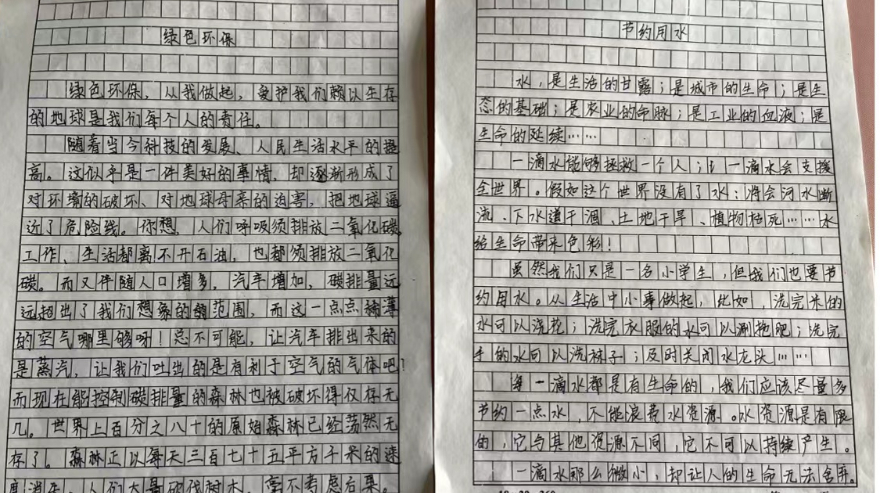 绿色环保
绿色环保，从我做起，爱护我们赖以生存
的地球是我们每个人的责任。
随着当今科技的发展、人民生活水平的提
高。这似乎是一件美好的事情，却逐渐形成了
对环境的破坏、对地球母亲的迫害，把地球逼
近了危险线。你想，人们呼吸须排放二氧化碳，
工作、生活都离不开石油，也都须排放二氧化
碳。而又伴随人口增多，汽车增加，碳排量远
远超出了我们想象的范围，而这一点点稀薄
的空气哪里够呀！总不可能，让汽车排出来的
是蒸汽，让我们吐出的是有利于空气的气体吧！
而现在能控制碳排量的森林也被破坏得仅存无
几。世界上百分之八十的原始森林已经荡然无
存了。森林正以每天三百七十五平方千米的速
度消失。人们大量砍伐树木，毫不考虑后果。
节约用水
水，是生活的甘露；是城市的生命；是生
态的基础；是农业的命脉；是工业的血液；是
生命的延续……
一滴水能够拯救一个人；一滴水会支援
全世界。假如这个世界没有了水：将会河水断
流、下水道干涸、土地干旱、植物枯死……水
给生命带来色彩！
虽然我们只是一名小学生，但我们也要节
约用水。从生活中小事做起，比如，洗完米的
水可以浇花；洗完衣服的水可以涮拖把；洗完
手的水可以洗袜子；及时关闭水龙头……
每一滴水都是有生命的，我们应该尽量多
节约一点水，不能浪费水资源。水资源是有限
的，它与其他资源不同，它不可以持续产生。
一滴水那么微小，却让人的生命无法舍弃。